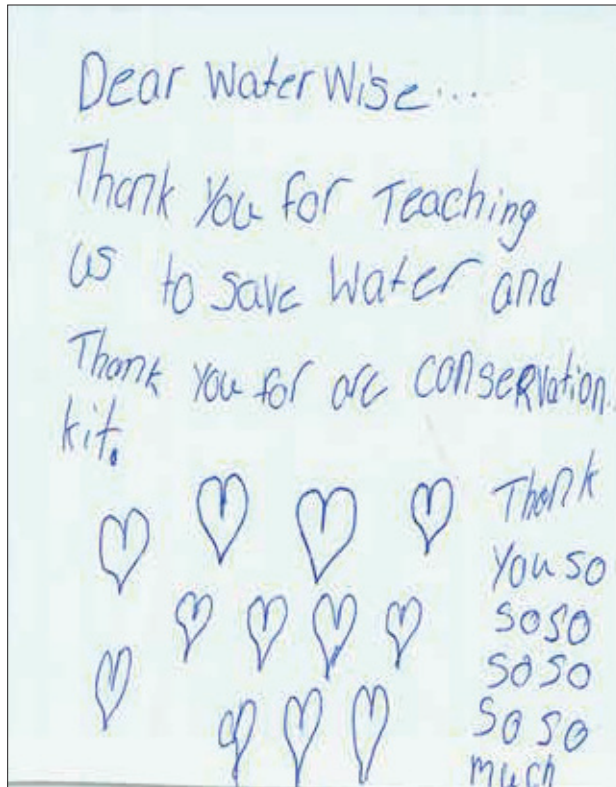 Dear Water Wise....
Thank You for Teaching
us to save Water and
Thank You for are conseRvation..
kit.
Thank
You so
so so
so so
so so
much